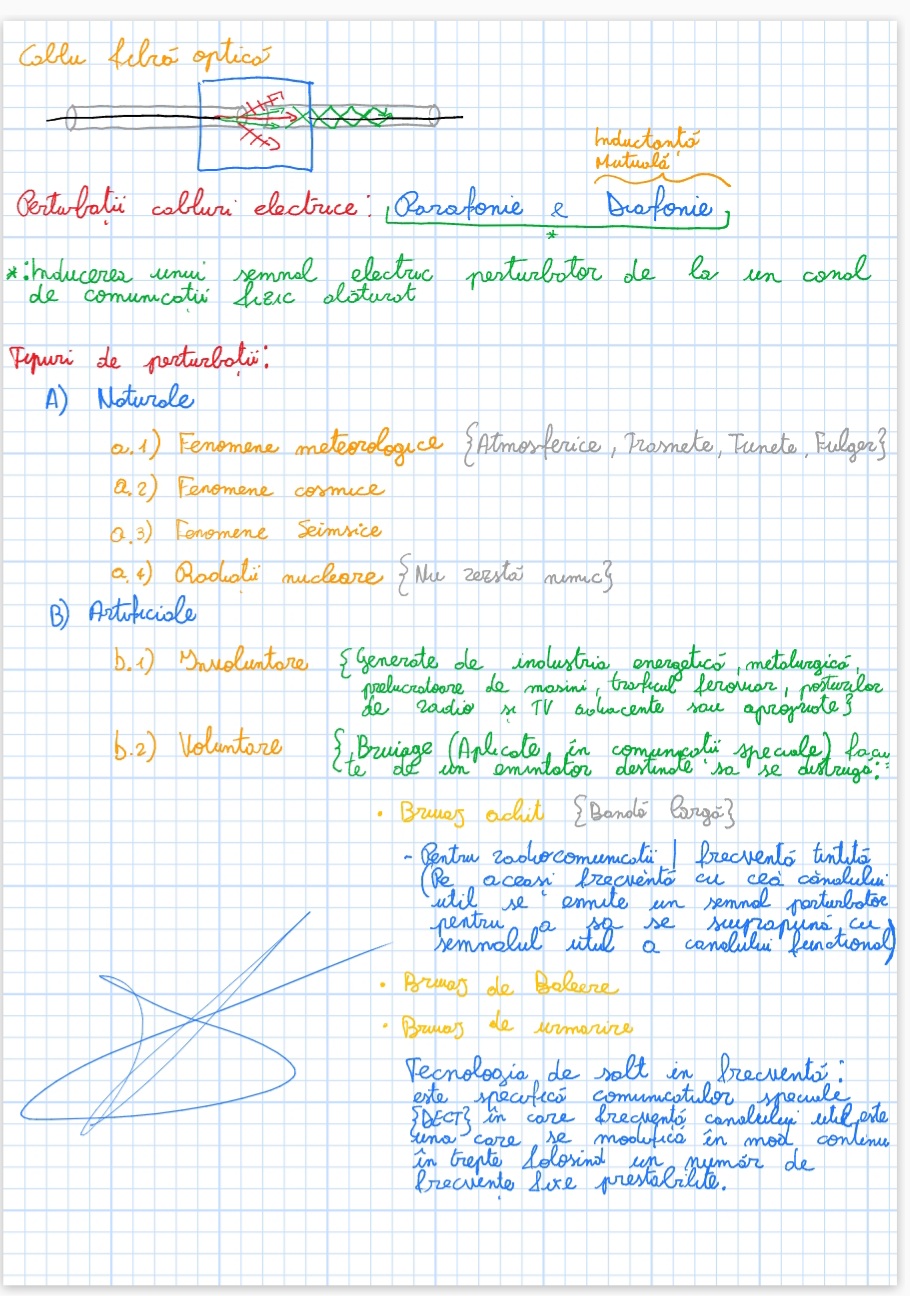 Cablu fibră optică
Inductanță
Mutuală
Perturbații cabluri electrice: Parafonie & Diafonie
*
*: Inducerea unui semnal electric perturbator de la un canal
de comunicații fizic alăturat
Tipuri de perturbații:
A) Naturale
a.1) Fenomene meteorologice {Atmosferice, Trasnete, Tunete, Fulger}
a.2) Fenomene cosmice
a.3) Fenomene Seimsice
a.4) Radiații nucleare {Nu rezistă nimic}
B) Artificiale
b.1) Involuntare {Generate de industria energetică, metalurgică,
prelucratoare de masini, traficul feroviar, posturilor
de radio si TV adiacente sau apropiate}
b.2) Voluntare {Bruiage (Aplicate în comunicații speciale) facu
te de un emintator destinate sa se distruga:
• Bruiaj achit {Bandă largă}
- Pentru radiocomunicatii | frecvență țintită
(Pe aceasi frecvență cu cea canalului
util se emite un semnal perturbator
pentru a sa se suprapună cu
semnalul util a canalului functional)
• Bruiaj de Baleere
• Bruiaj de urmarire
Tecnologia de salt in frecventă:
este specifică comunicatiilor speciale
{DECT} în care frecvență canalului util este
una care se modifică în mod continu
în trepte folosind un număr de
frecvențe fixe prestabilite.